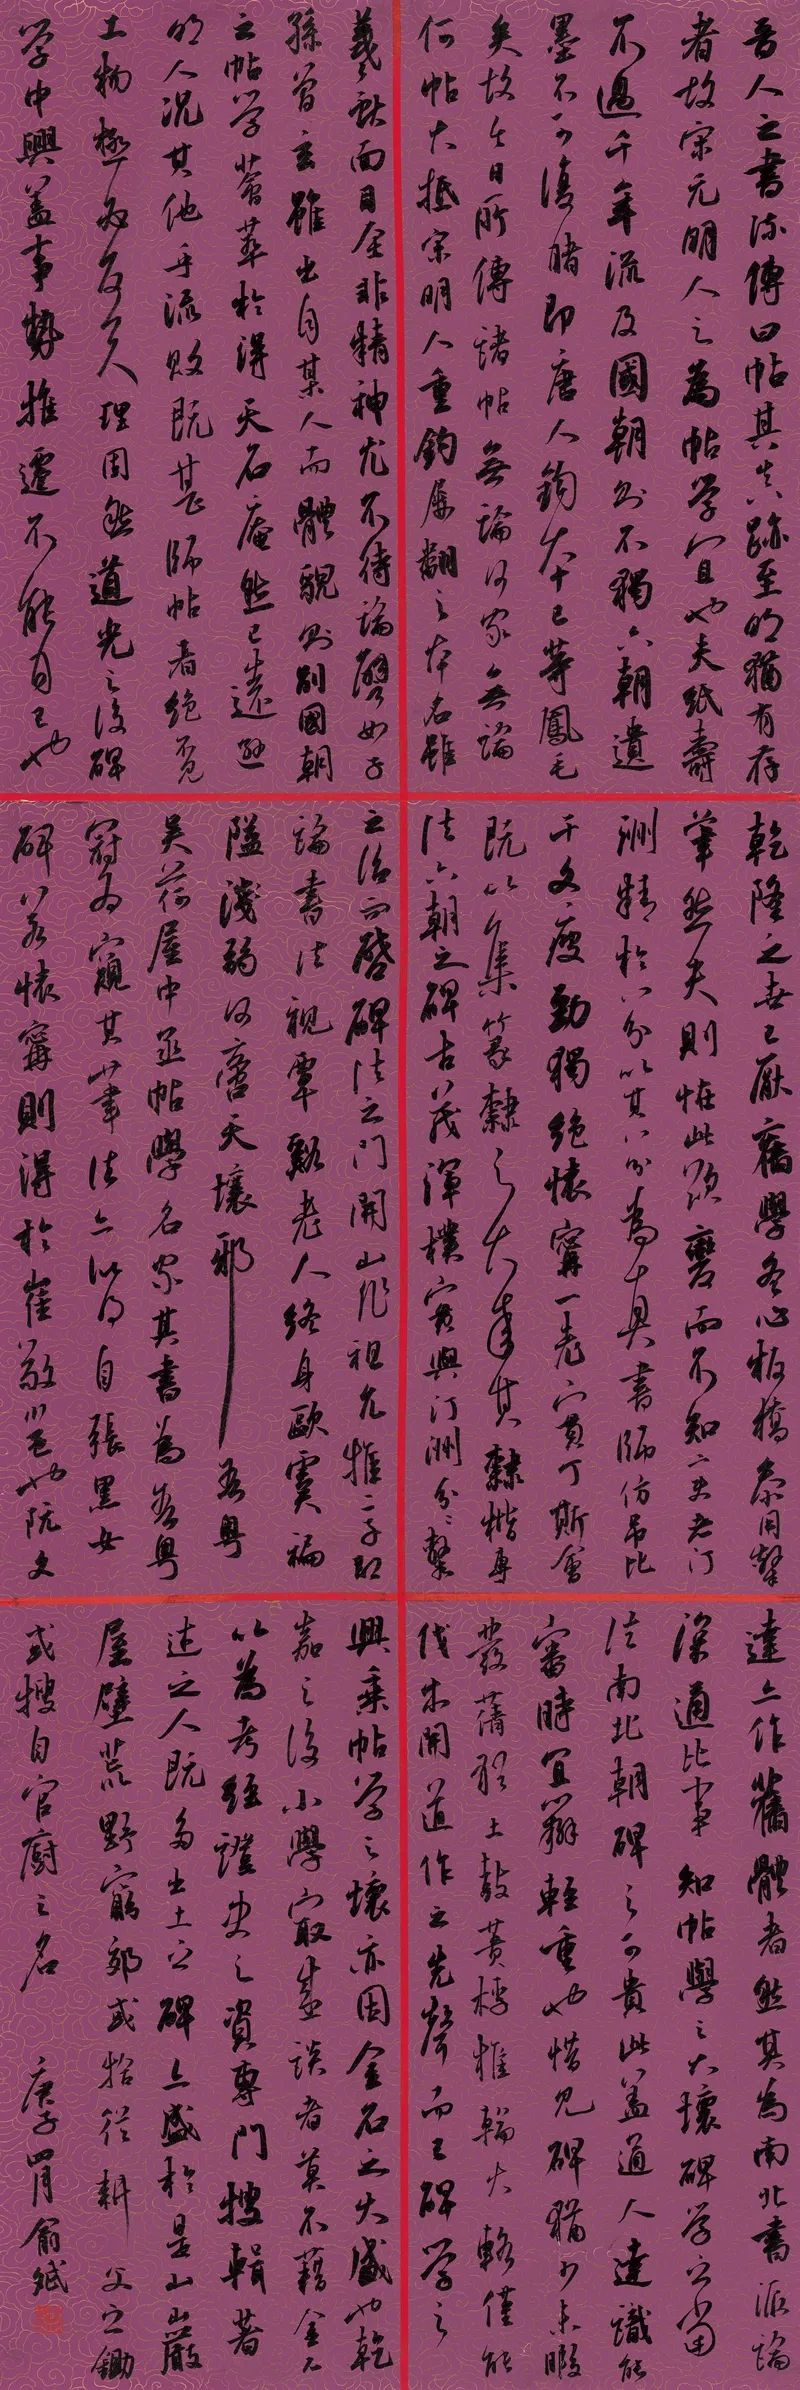 晋人之書流傳曰帖其真跡至明猶有存
者故宋元明人之為帖学宜也夫紙壽
不過千年流及國朝則不獨六朝遺
墨不可復睹即唐人鈎本已等鳳毛
矣故今日所傳諸帖無論何家無論
何帖大抵宋明人重鈎屢翻之本名雖
羲獻面目全非精神尤不待論譬如子
孫曾玄雖出自某人而體貌則別國朝
之帖学薈萃於得天石庵然已遠遜
明人況其他乎流敗既甚師帖者絕不見
工物極必反天理固然道光之後碑
学中興蓋事勢推遷不能自已也
乾隆之世已厭舊學冬心板橋參用隸
筆然失則怪此欲變而不知變者汀
洲精於八分以其八分為真書師仿吊比
干文瘦勁獨絕懷寧一老實丁斯會
既以集篆隸之大成其隸楷專
法六朝之碑古茂渾樸實與汀洲分隸
之治而啓碑法之門開山作祖允推二子即
論書法視覃谿老人終身歐虞褊
隘淺弱何啻天壤邪 吾粵
吳荷屋中丞帖學名家其書為吾粵
冠然窺其筆法亦似得自張黑女
碑若懷寧則得於崔敬邕也阮文
達亦作舊體者然其為南北書派論
深通此事知帖學之大壞碑学之當
法南北朝碑之可貴此蓋通人達識能
審時宜辨輕重也惜見碑猶少未暇
發蒨於土鼓蕢桴椎輪大輅僅能
伐木開道作之先聲而已碑学之
興乘帖学之壞亦因金石之大盛也乾
嘉之後小學最盛談者莫不藉金石
以為考經證史之資專門搜輯著
述之人既多出土之碑亦盛於是山巖
屋壁荒野窮郊或拾從耕父之鋤
或搜自官廚之石 庚子四月俞斌